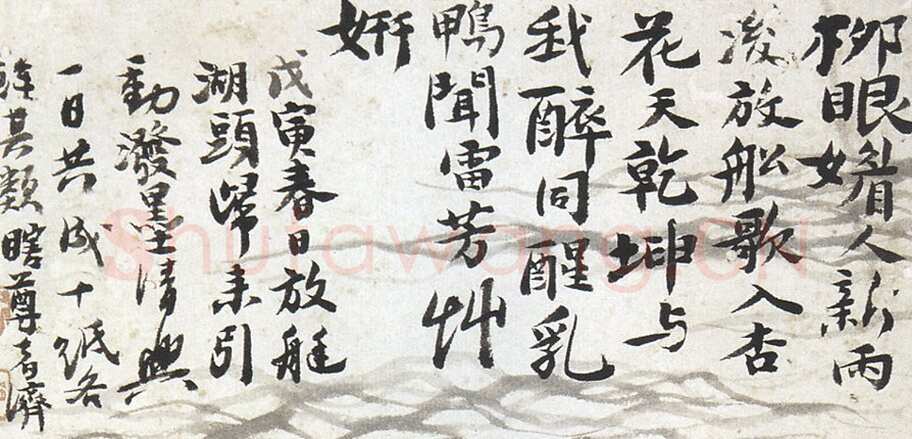 柳眼媚人新雨
後放船歌入杏
花天乾坤与
我醉同醒乳
鴨聞雷芳艸
妍
戊寅春日放艇
湖頭歸来引
動潑墨清興
一日共成十紙各
其類瞎尊者濟
Shufawang.CN